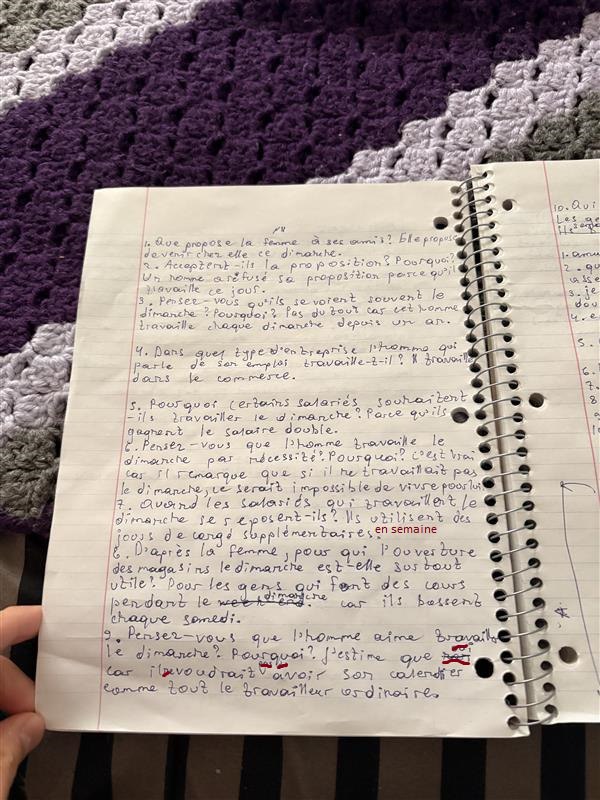 1. Que propose la femme à ses amis? Elle propose
de venir chez elle ce dimanche.
2. Acceptent-ils la proposition? Pourquoi?
Un homme a refusé sa proposition parce qu'il
travaille ce jour.
3. Pensez-vous qu'ils se voient souvent le
dimanche? Pourquoi? Pas du tout car cet homme
travaille chaque dimanche depuis un an.
4. Dans quel type d'entreprise l'homme qui
parle de son emploi travaille-t-il? Il travaille
dans le commerce.
5. Pourquoi certains salariés souhaitent
-ils travailler le dimanche? Parce qu'ils
gagnent le salaire double.
6. Pensez-vous que l'homme travaille le
dimanche par nécessité? Pourquoi? C'est vrai
car il remarque que si il ne travaillait pas
le dimanche, ce serait impossible de vivre pour lui
7. Quand les salariés qui travaillent le
dimanche se reposent-ils? Ils utilisent des
jours de congé supplémentaires.
en semaine
8. D'après la femme, pour qui l'ouverture
des magasins le dimanche est-elle surtout
utile? Pour les gens qui font des cours
pendant le dimanche. car ils bossent
chaque samedi.
9. Pensez-vous que l'homme aime travailler
le dimanche? Pourquoi? J'estime que
car il voudrait avoir son calendier
comme tout le travailleur ordinaire.
10. Qui
Les ge